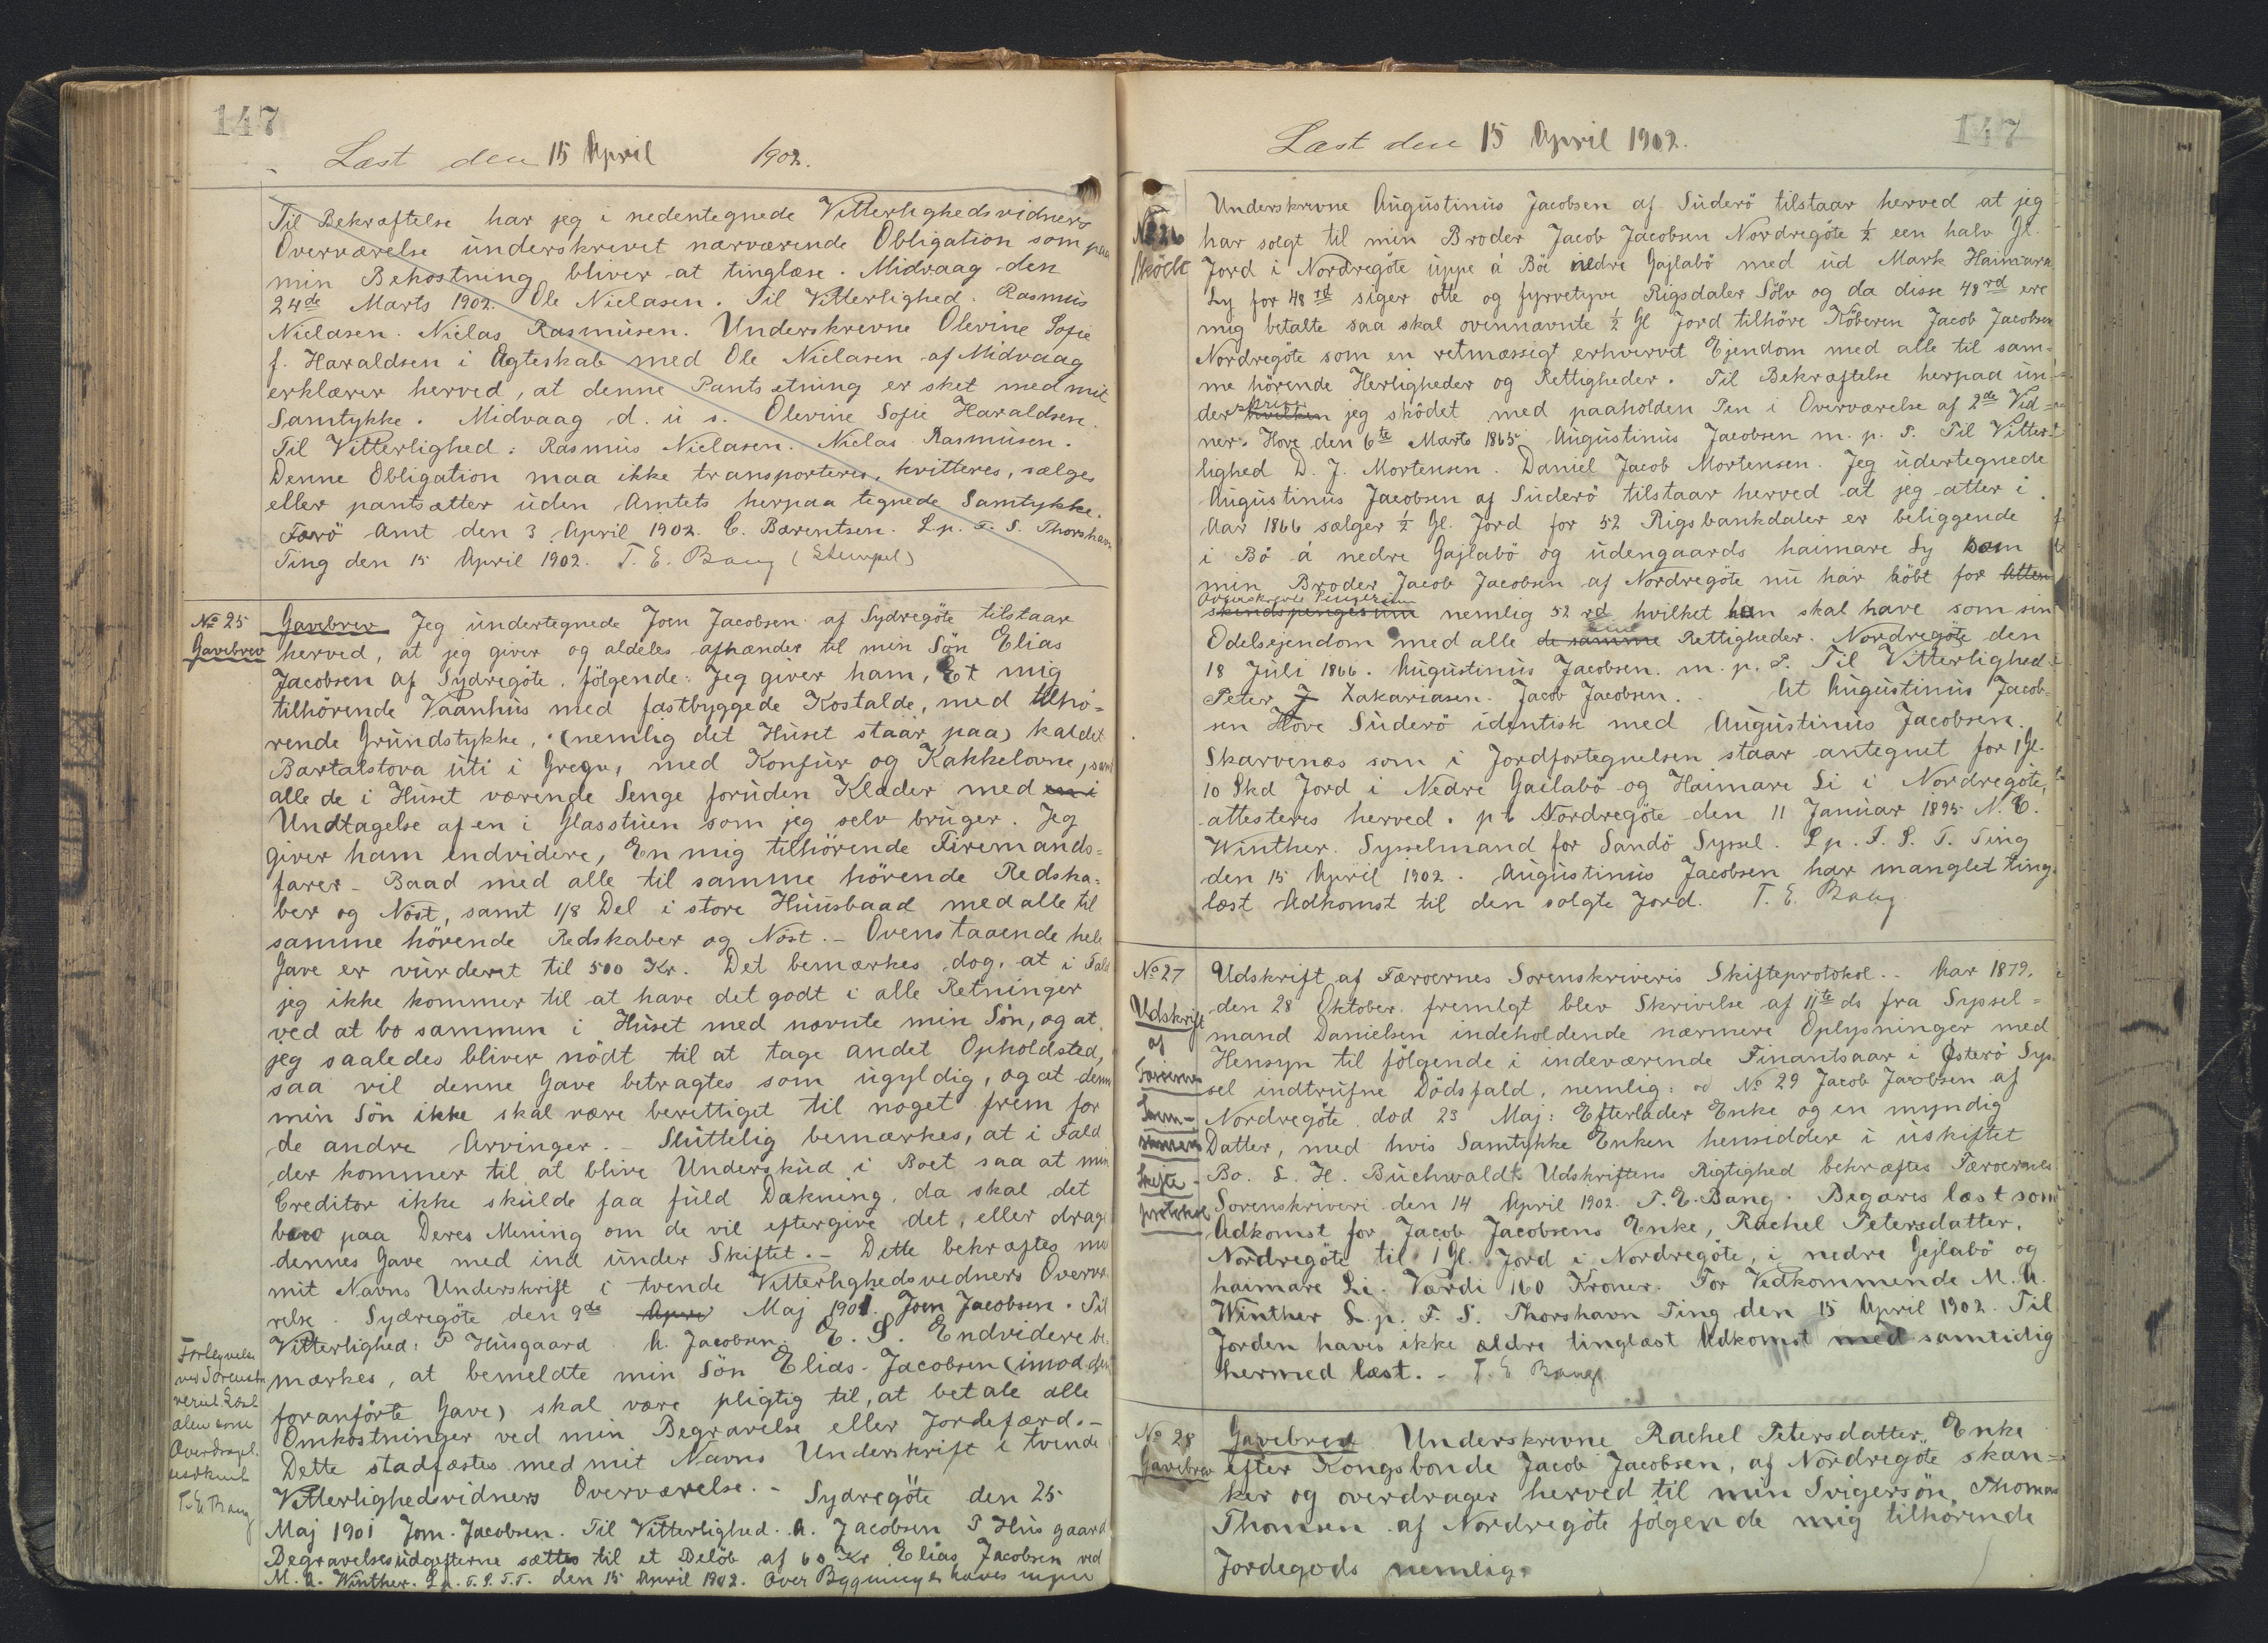 147
Læst den 15 April 1902.
Til Bekræftelse har jeg i nedentegnede Vitterlighedsvidners
Overværelse underskrevet nærværende Obligation som paa
min Bekostning bliver at tinglæse. Midvaag den
24de Marts 1902. Ole Nielasen. Til Vitterlighed. Rasmus
Nielasen. Nielas Rasmusen. Underskrevne Olevine Sofie
f. Haraldsen i Ægteskab med Ole Nielasen af Midvaag
erklærer herved, at denne Pantsetning er sket med mit
Samtykke. Midvaag d. u s. Olevine Sofie Haraldsen.
Til Vitterlighed: Rasmus Nielasen. Nielas Rasmusen.
Denne Obligation maa ikke transporteres, kvitteres, sælges
eller pantsætter uden Amtets herpaa tegnede Samtykke.
Færö Amt den 3 April 1902. C. Bærentsen. L.p. F. S. Thorshavn
Ting den 15 April 1902. T. E. Bang (Stempel)
No 25
Gavebrev
Gavebrev Jeg undertegnede Joen Jacobsen af Sydregöte tilstaar
herved, at jeg giver og aldeles afhænder til min Sön Elias
Jacobsen af Sydregöte, fölgende: Jeg giver ham, Et mig
tilhörende Vaanhus med fastbyggede Kostalde, med tilhö-
rende Grundstykke, (nemlig det Huset staar paa) kaldet
Bartalstova uti i Gregv, med Konfur og Kakkelovne, samt
alle de i Huset værende Senge foruden Klæder med en i
Undtagelse af en i Glasstuen som jeg selv bruger. Jeg
giver ham endvidere, En mig tilhörende Firemands-
farer-Baad med alle til samme hörende Redska-
ber og Nöst, samt 1/8 Del i store Huusbaad med alle til
samme hörende Redskaber og Nöst. - Ovenstaaende hele
Gave er vurderet til 500 Kr. Det bemærkes dog, at i Fald
jeg ikke kommer til at have det godt i alle Retninger
ved at bo sammen i Huset med nævnte min Sön, og at
jeg saaledes bliver nödt til at tage andet Opholdsted,
saa vil denne Gave betragtes som ugyldig, og at denne
min Sön ikke skal være berettiget til noget frem for
de andre Arvinger. - Sluttelig bemærkes, at i Fald
der kommer til at blive Underskud i Boet saa at min
Creditor ikke skulde faa fuld Dækning, da skal det
bero paa Deres Mening om de vil eftergive det, eller drage
dennes Gave med ind under Skiftet. - Dette bekræftes med
mit Navns Underskrift i tvende Vitterlighedsvedners Overvæ-
relse. Sydregöte den 9de April Maj 1901. Joen Jacobsen. Til
Vitterlighed: P Husgaard A. Jacobsen. E. S. Endvidere be-
mærkes, at bemeldte min Sön Elias Jacobsen (imod den
foranförte Gave) skal være pligtig til, at betale alle
Omkostninger ved min Begravelse eller Jordefærd. -
Dette stadfæstes med mit Navns Underskrift i tvende
Vitterlighedsvidners Overværelse. - Sydregöte den 25
Maj 1901 Joen Jacobsen. Til Vitterlighed. A. Jacobsen P Husgaard
Begravelsesudgifterne sættes til et Belöb af 60 Kr Elias Jacobsen ved
M. A. Winther. L.p. F. S. T. T. den 15 April 1902. Over Bygningen haves ingen
T. E. Bang
147
Læst den 15 April 1902.
No 26
Sköde
Underskrevne Augustinus Jacobsen af Suderö tilstaar herved at jeg
har solgt til min Broder Jacob Jacobsen Nordregöte ½ een halv Gl.
Jord i Nordregöte uppe á Böe nedre Gajlabö med ud Mark Haimara
Ly for 48 rd siger otte og fyrvetyve Rigsdaler Sölv og da disse 48 rd ere
mig betalte saa skal ovennævnte ½ Gl Jord tilhöre Köberen Jacob Jacobsen
Nordregöte som en retmæssigt erhvervet Ejendom med alle til sam-
me hörende Herligheder og Rettigheder. Til Bekræftelse herpaa un-
derskriver jeg sködet med paaholden Pen i Overværelse af 2de Vid-
ner. Hove den 6te Marts 1865 Augustinus Jacobsen m. p. P. Til Vitter-
lighed D. J. Mortensen. Daniel Jacob Mortensen. Jeg udertegnede
Augustinus Jacobsen af Suderö tilstaar herved at jeg atter i
Aar 1866 sælger ½ Gl. Jord for 52 Rigsbankdaler er beliggende
i Bö á nedre Gajlabö og udengaards haimare Ly som
min Broder Jacob Jacobsen af Nordregöte nu har köbt for Atten
Ovenskrevne Pengesum
skindspengesum nemlig 52 rd hvilket han skal have som sin
Odelsejendom med alle de samme Rettigheder. Nordregöte den
18 Juli 1866. Augustinus Jacobsen. m. p. P. Til Vitterlighed.
Peter J Zakariasen. Jacob Jacobsen. At Augustinus Jacob-
sen Hove Suderö identisk med Augustinus Jacobsen.
Skarvenæs som i Jordfortegnelsen staar antegnet for 1 Gl.
10 Skd Jord i Nedre Gaelabö og Haimare Li i Nordregöte,
attesteres herved. p t Nordregöte den 11 Januar 1895 N. C.
Winther. Sysselmand for Sandö Syssel. L p. F. S. T. Ting
den 15 April 1902. Augustinus Jacobsen har manglet ting-
læst Adkomst til den solgte Jord. T. E. Bang
No 27
Udskrift
af
Færöernes
Soren-
skriveris
Skifte-
protokol
Udskrift af Færoernes Sorenskriveris Skifteprotokol. - Aar 1879.
den 28 Oktober fremlgt blev Skrivelse af 11te ds fra Syssel-
mand Danielsen indeholdende nærmere Oplysninger med
Hensyn til fölgende i indeværende Finantsaar i Österö Sys-
sel indtrufne Dödsfald, nemlig: No 29 Jacob Jacobsen af
Nordregöte död 23 Maj: Efterlader Enke og en myndig
Datter, med hvis Samtykke Enken hensidder i uskiftet
Bo. L. H. Buchwaldt Udskriftens Rigtighed bekræftes Færoernes
Sorenskriveri den 14 April 1902. T. E. Bang. Begæres læst som
Adkomst for Jacob Jacobsens Enke, Rachel Petersdatter.
Nordregöte til 1 Gl. Jord i Nordregöte, i nedre Gejlabö og
haimare Li. Værdi 160 Kroner. For Vedkommende M. A.
Winther L. p. F. S. Thorshavn Ting den 15 April 1902. Til
Jorden haves ikke ældre tinglæst Adkomst med samtidig
hermed læst. - T. E Bang
No 28
Gavebrev
Gavebrev Underskrevne Rachel Petersdatter, Enke
efter Kongsbonde Jacob Jacobsen, af Nordregöte skæn-
ker og overdrager herved til min Svigersön, Thomas
Thomsen af Nordregöte fölgende mig tilhörende
Jordegods nemlig: